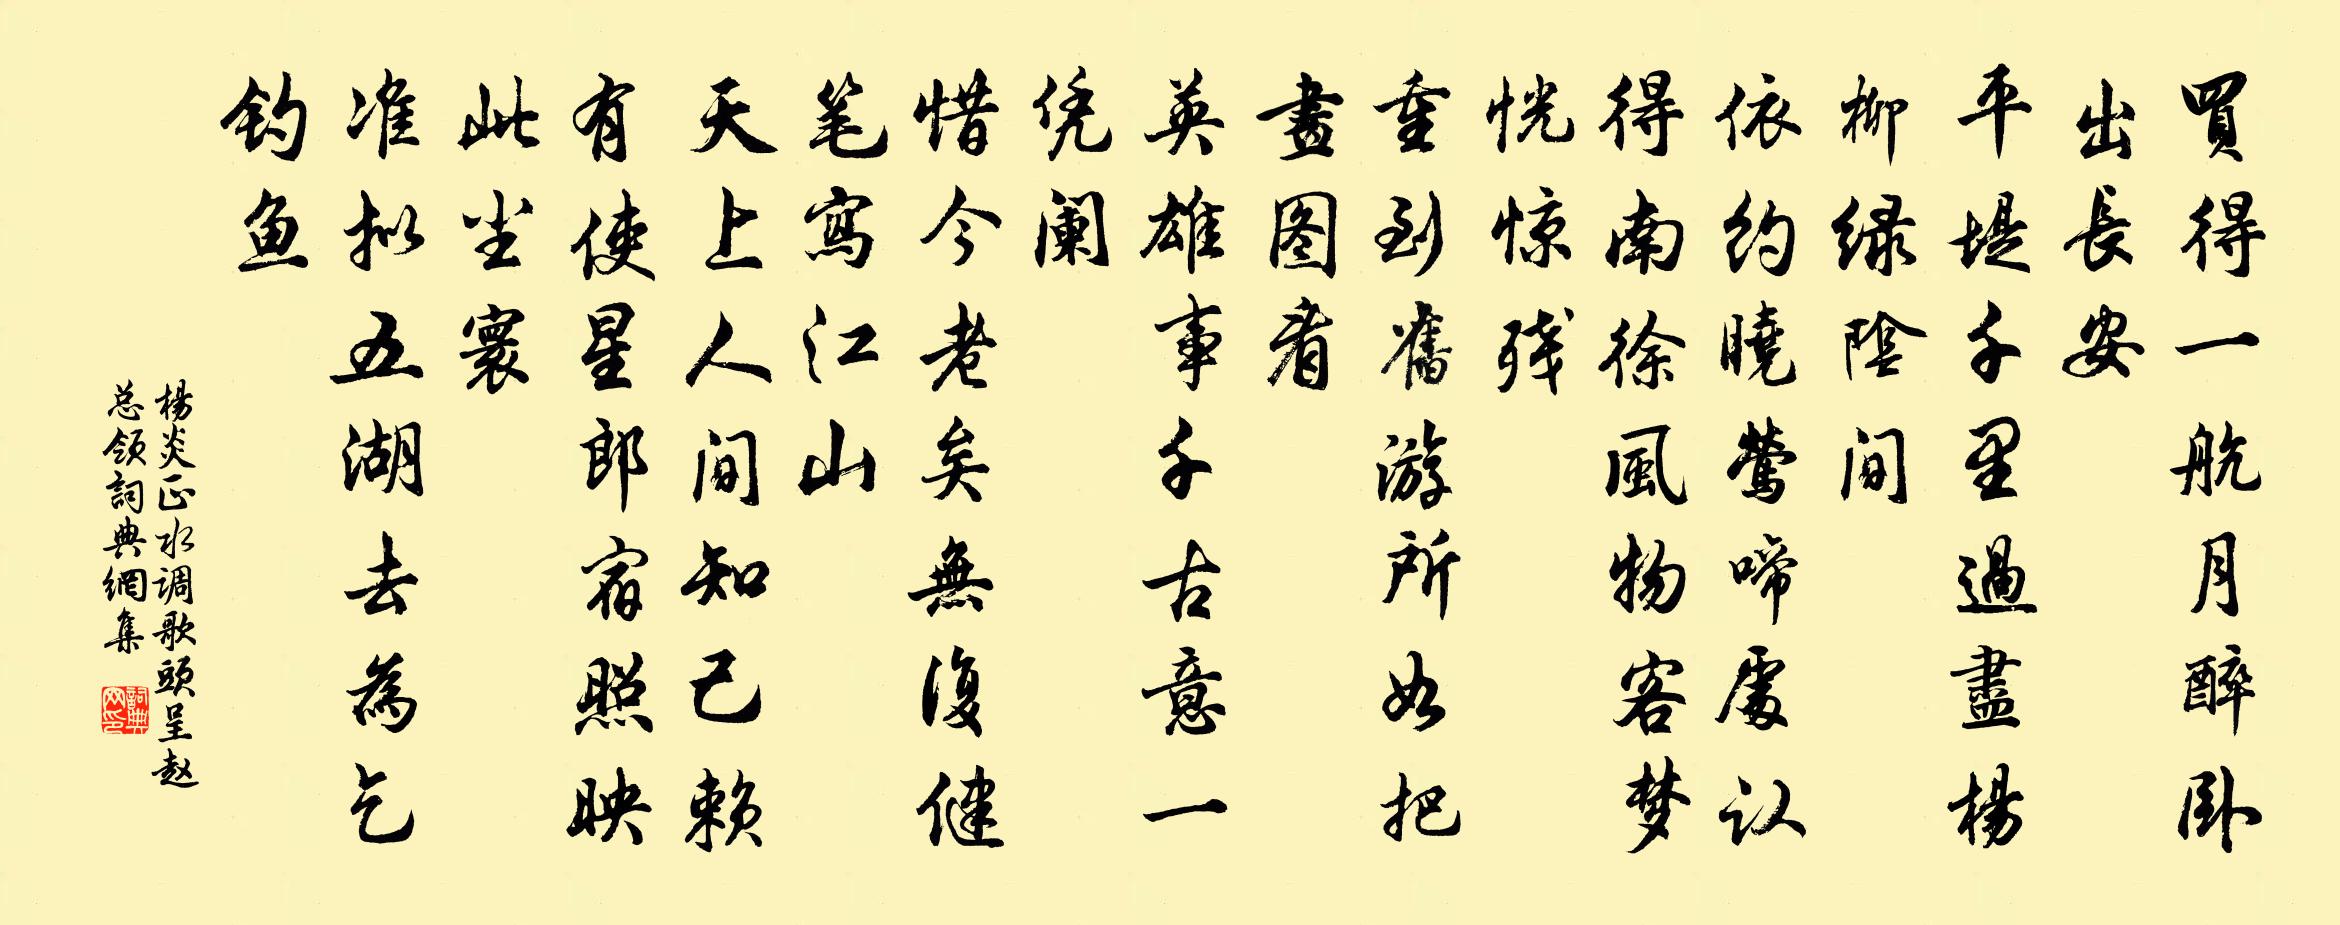 買得一航月醉卧
出長安
平堤千里過盡楊
柳绿陰间
依约曉鶯啼處认
得南徐風物客梦
恍惊残
重到舊游所如把
畫图看
英雄事千古意一
凭阑
惜今老矣無復健
笔寫江山
天上人间知己赖
有使星郎宿照映
此尘寰
准拟五湖去為乞
钓鱼
楊炎正水调歌頭呈赵
总领詞典網集
詞典
网印